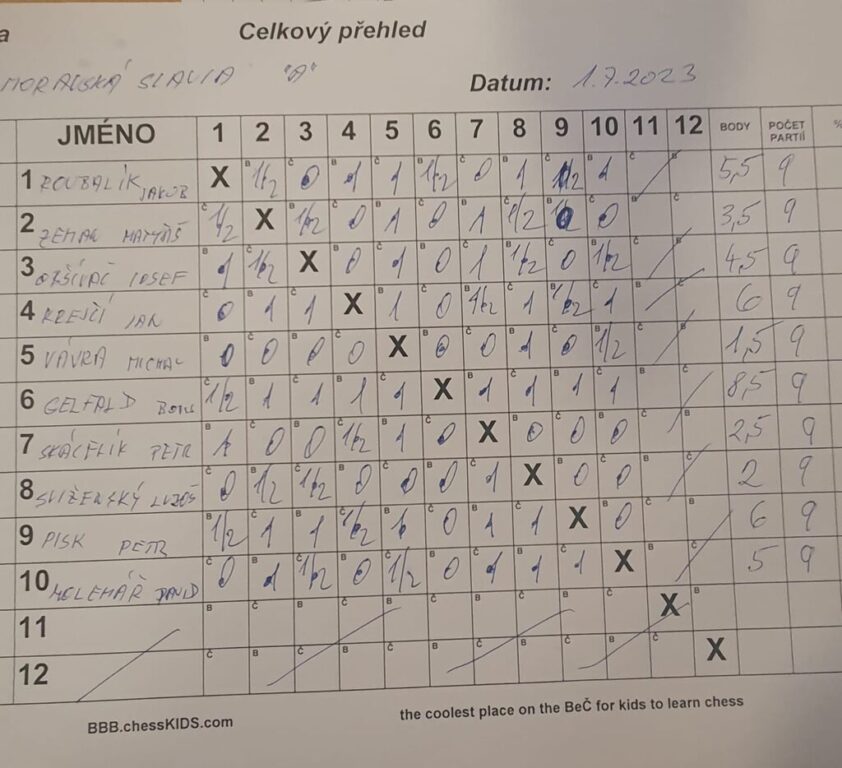 a Celkový přehled
MORAVSKÁ SLAVIA "A" Datum: 1.7.2023
JMÉNO 1 2 3 4 5 6 7 8 9 10 11 12 BODY POČET PARTIÍ %
1 ROUBALÍK JAKUB X 1/2 0 1 1 1/2 0 1 1/2 1 5,5 9
2 ZEMAN MATYÁŠ 1/2 X 1/2 0 1 0 1 1/2 0 0 3,5 9
3 JOSEF 1 1/2 X 0 1 0 1 1/2 0 1/2 4,5 9
4 KREJČÍ JAN 0 1 1 X 1 0 1/2 1 1/2 1 6 9
5 VÁVRA MICHAL 0 0 0 0 X 0 0 1 0 1/2 1,5 9
6 GELFAND BORIS 1/2 1 1 1 1 X 1 1 1 1 8,5 9
7 SKÁCELÍK PETR 1 0 0 1/2 1 0 X 0 0 0 2,5 9
8 0 1/2 1/2 0 0 0 1 X 0 0 2 9
9 PISK PETR 1/2 1 1 1/2 1 0 1 1 X 0 6 9
10 DAVID 0 1 1/2 0 1/2 0 1 1 1 X 5 9
11 X
12 X
BBB.chessKIDS.com the coolest place on the BeČ for kids to learn chess